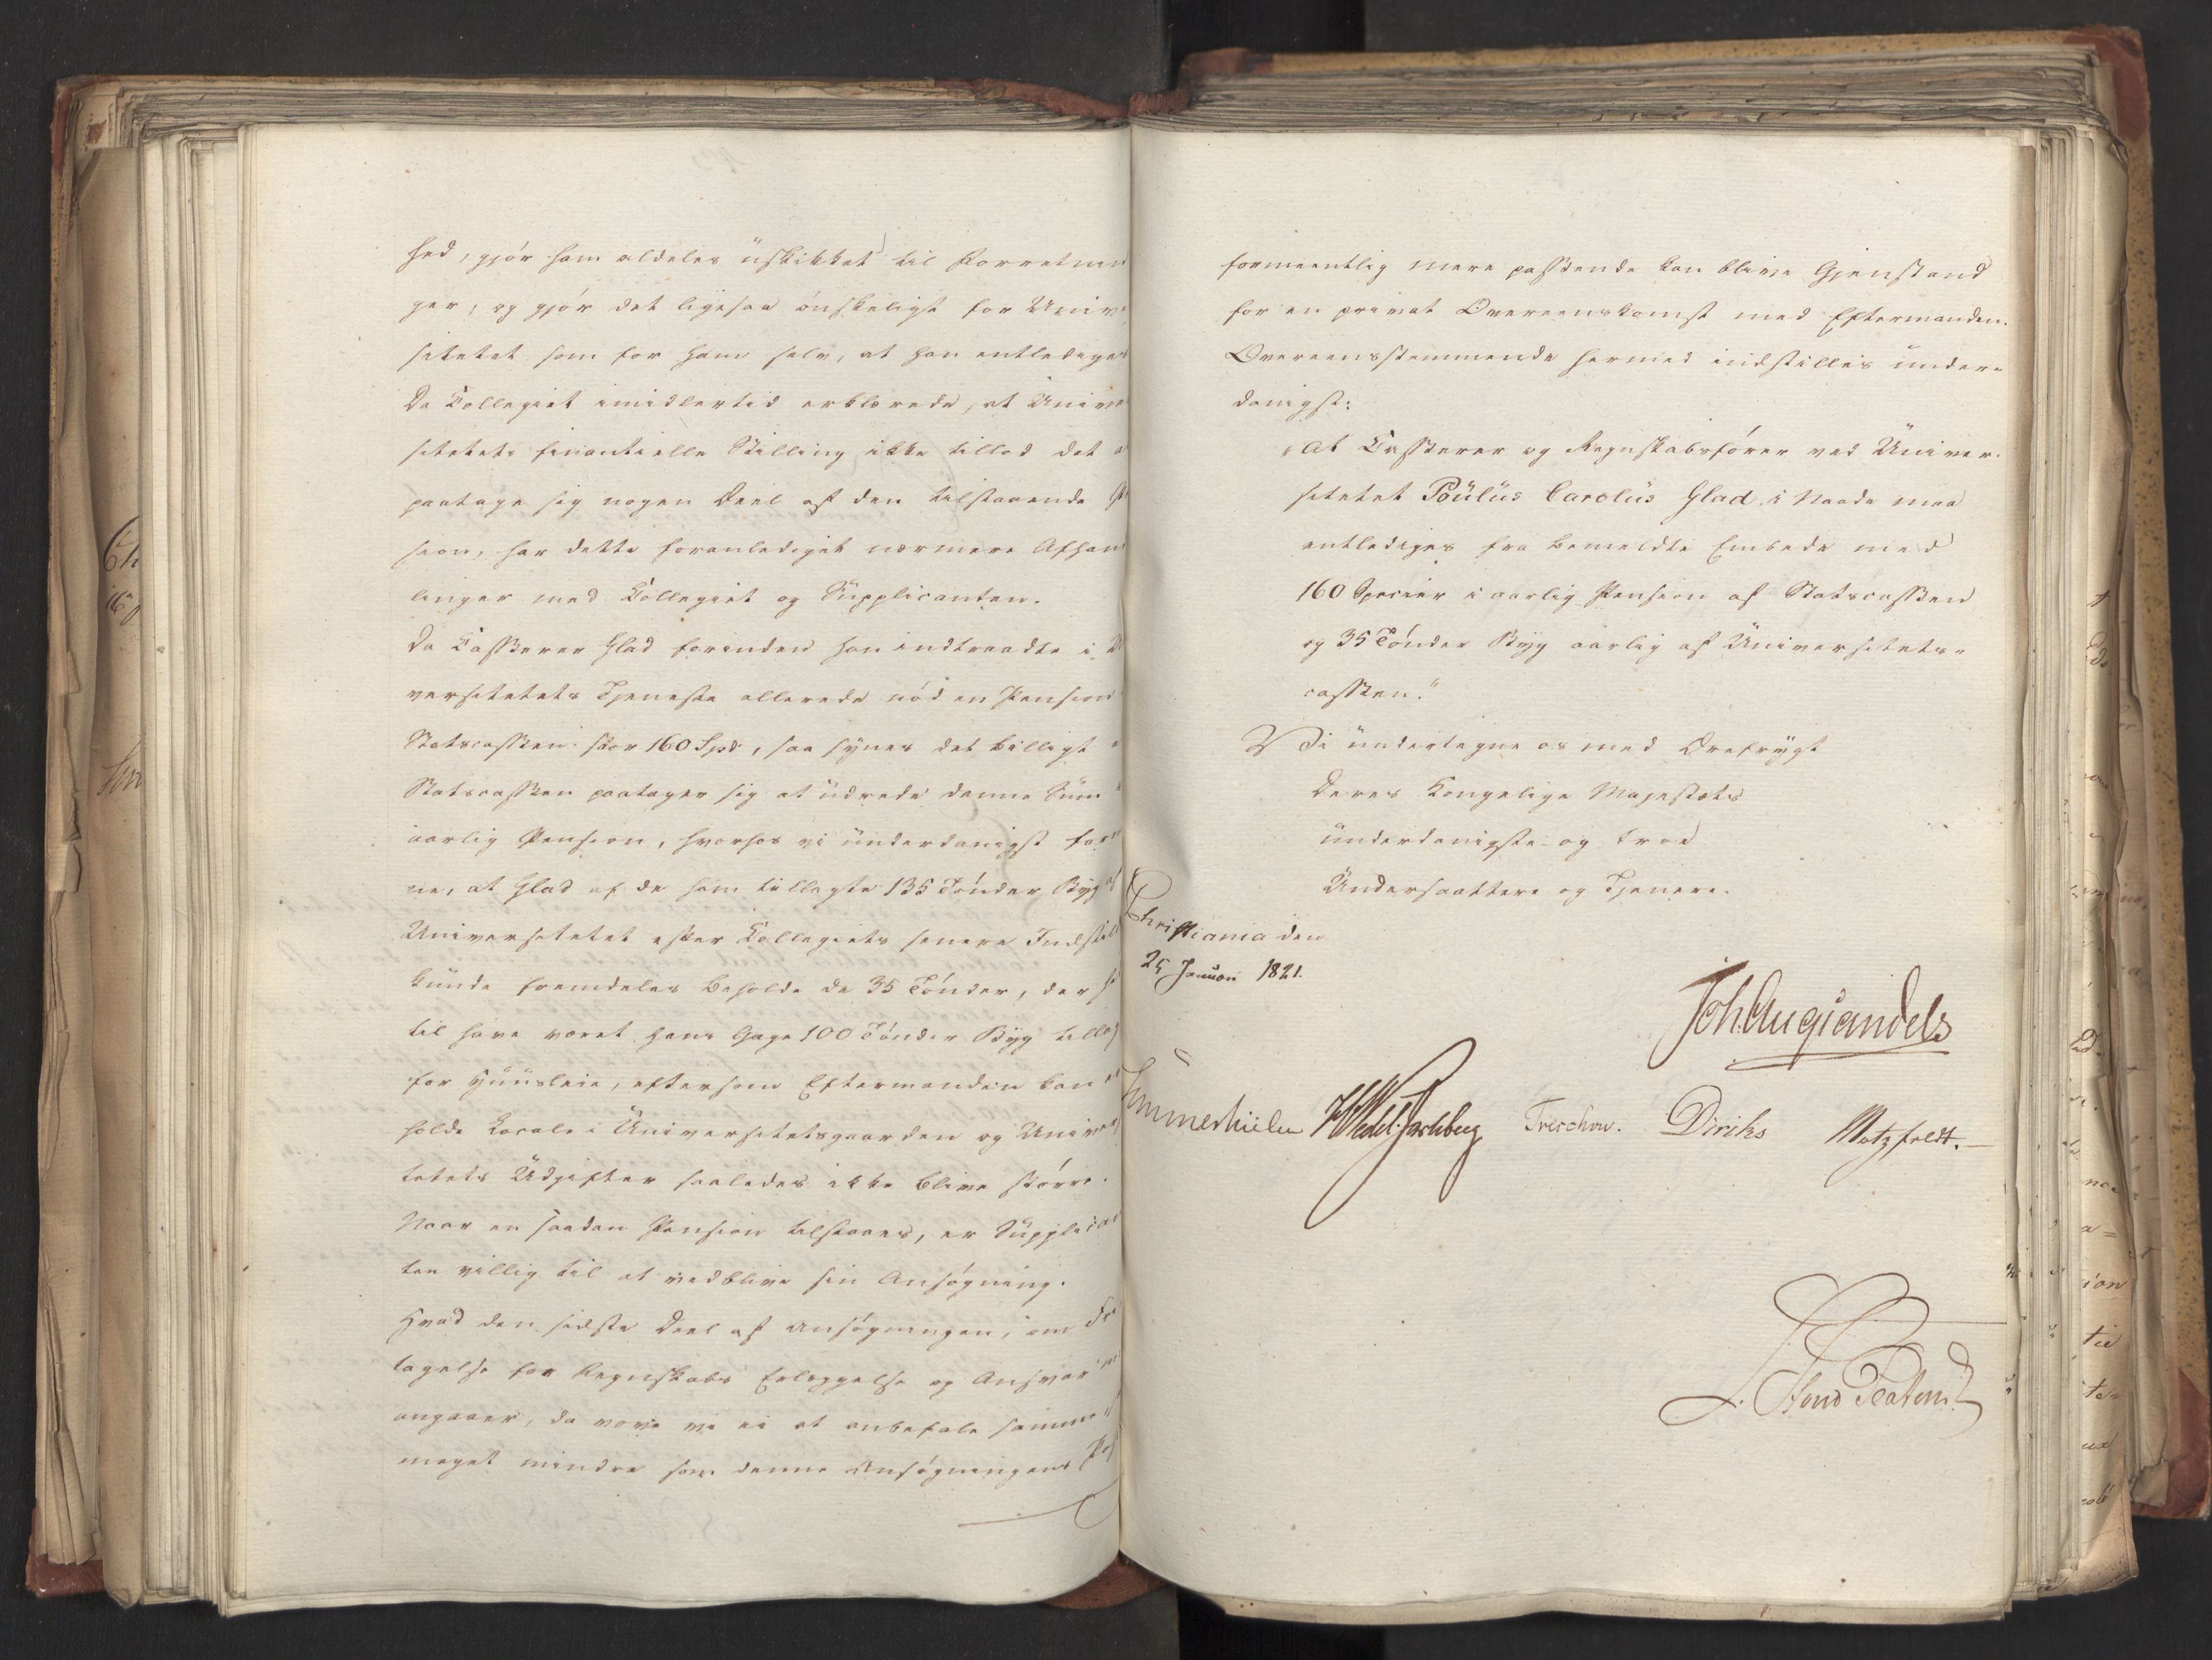 hed, gjór ham aldeles uskikket til Forretnin
ger, og gjór det ligesaa ónskeligt for Univer
sitetet som for ham selv, at han entlediges
Da Collegiet imidlertid erklærede, at Univer
sitetets finantielle Stilling ikke tillod det at
paatage sig nogen Deel af den tilstaaende Pen
sion, har dette foranlediget nærmere Afhand
linger med Collegiet og Supplicanten.
Da Casserer Glad forinden han indtraadte i Uni
versitetets Tjeneste allerede nód en Pension
Statscassen stor 160 Spd, saa synes det billigt at
Statscassen paatager sig at udrede denne Sum
aarlig Pension, hvorhos vi underdanigst form
ne, at Glad af de ham tillagte 135 Tónder Byg af
Universitetet efter Collegiets senere Indstill
kunde fremdeles beholde de 35 Tónder, der hid
til have været hans Gage 100 Tónder Byg tillagt
for Huusleie, eftersom Eftermanden kan er
holde Locale i Universitetsgaarden og Universi
tetets Udgifter saaledes ikke blive stórre.
Naar en saadan Pension tilstaaes, er Supplican
ten villig til at vedblive sin Ansógning.
Hvad den sidste Deel af Ansógningen, om Fri
tagelse for Regnskabs Erlæggelse og Ansvar
angaaer, da vove vi ei at anbefale samme
meget mindre som denne Ansógningens Post
formeentlig mere passende kan blive Gjenstand
for en privat Overeenskomst med Eftermanden.
Overeensstemmende hermed indstilles under-
danigst:
"At Casserer og Regnskabsfórer ved Univer-
sitetet Poulus Carolus Glad i Naade maa
entlediges fra bemeldte Embede med
160 Specier i aarlig Pension af Statscassen
og 35 Tónder Byg aarlig af Universitets-
cassen."
Vi undertegne os med Ærefrygt
Deres Kongelige Majestæts
underdanigste og troe
Undersaattere og Tjenere.
Christiania den
25 Januari 1821.
Joh. Aug Sandels
Sommerhielm HWedel Jarlsberg Treschow. Diriks Motzfeldt.